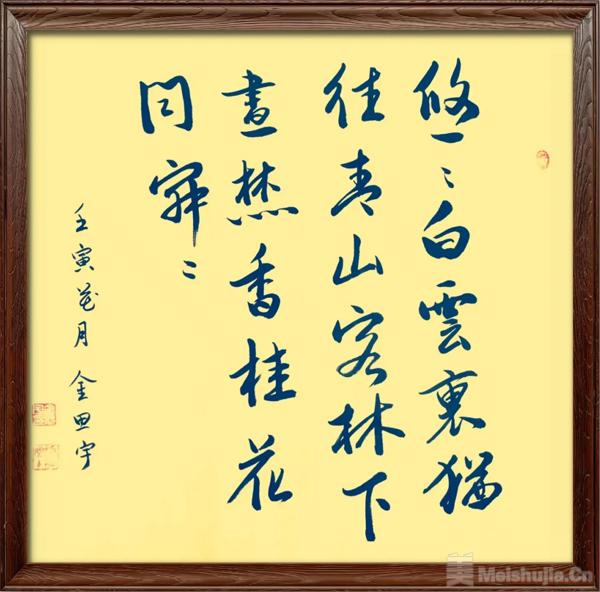 悠〻白雲裏獨
住青山客林下
晝焚香桂花
同寂〻
壬寅花月 金思宇
美 Meishujia.Cn